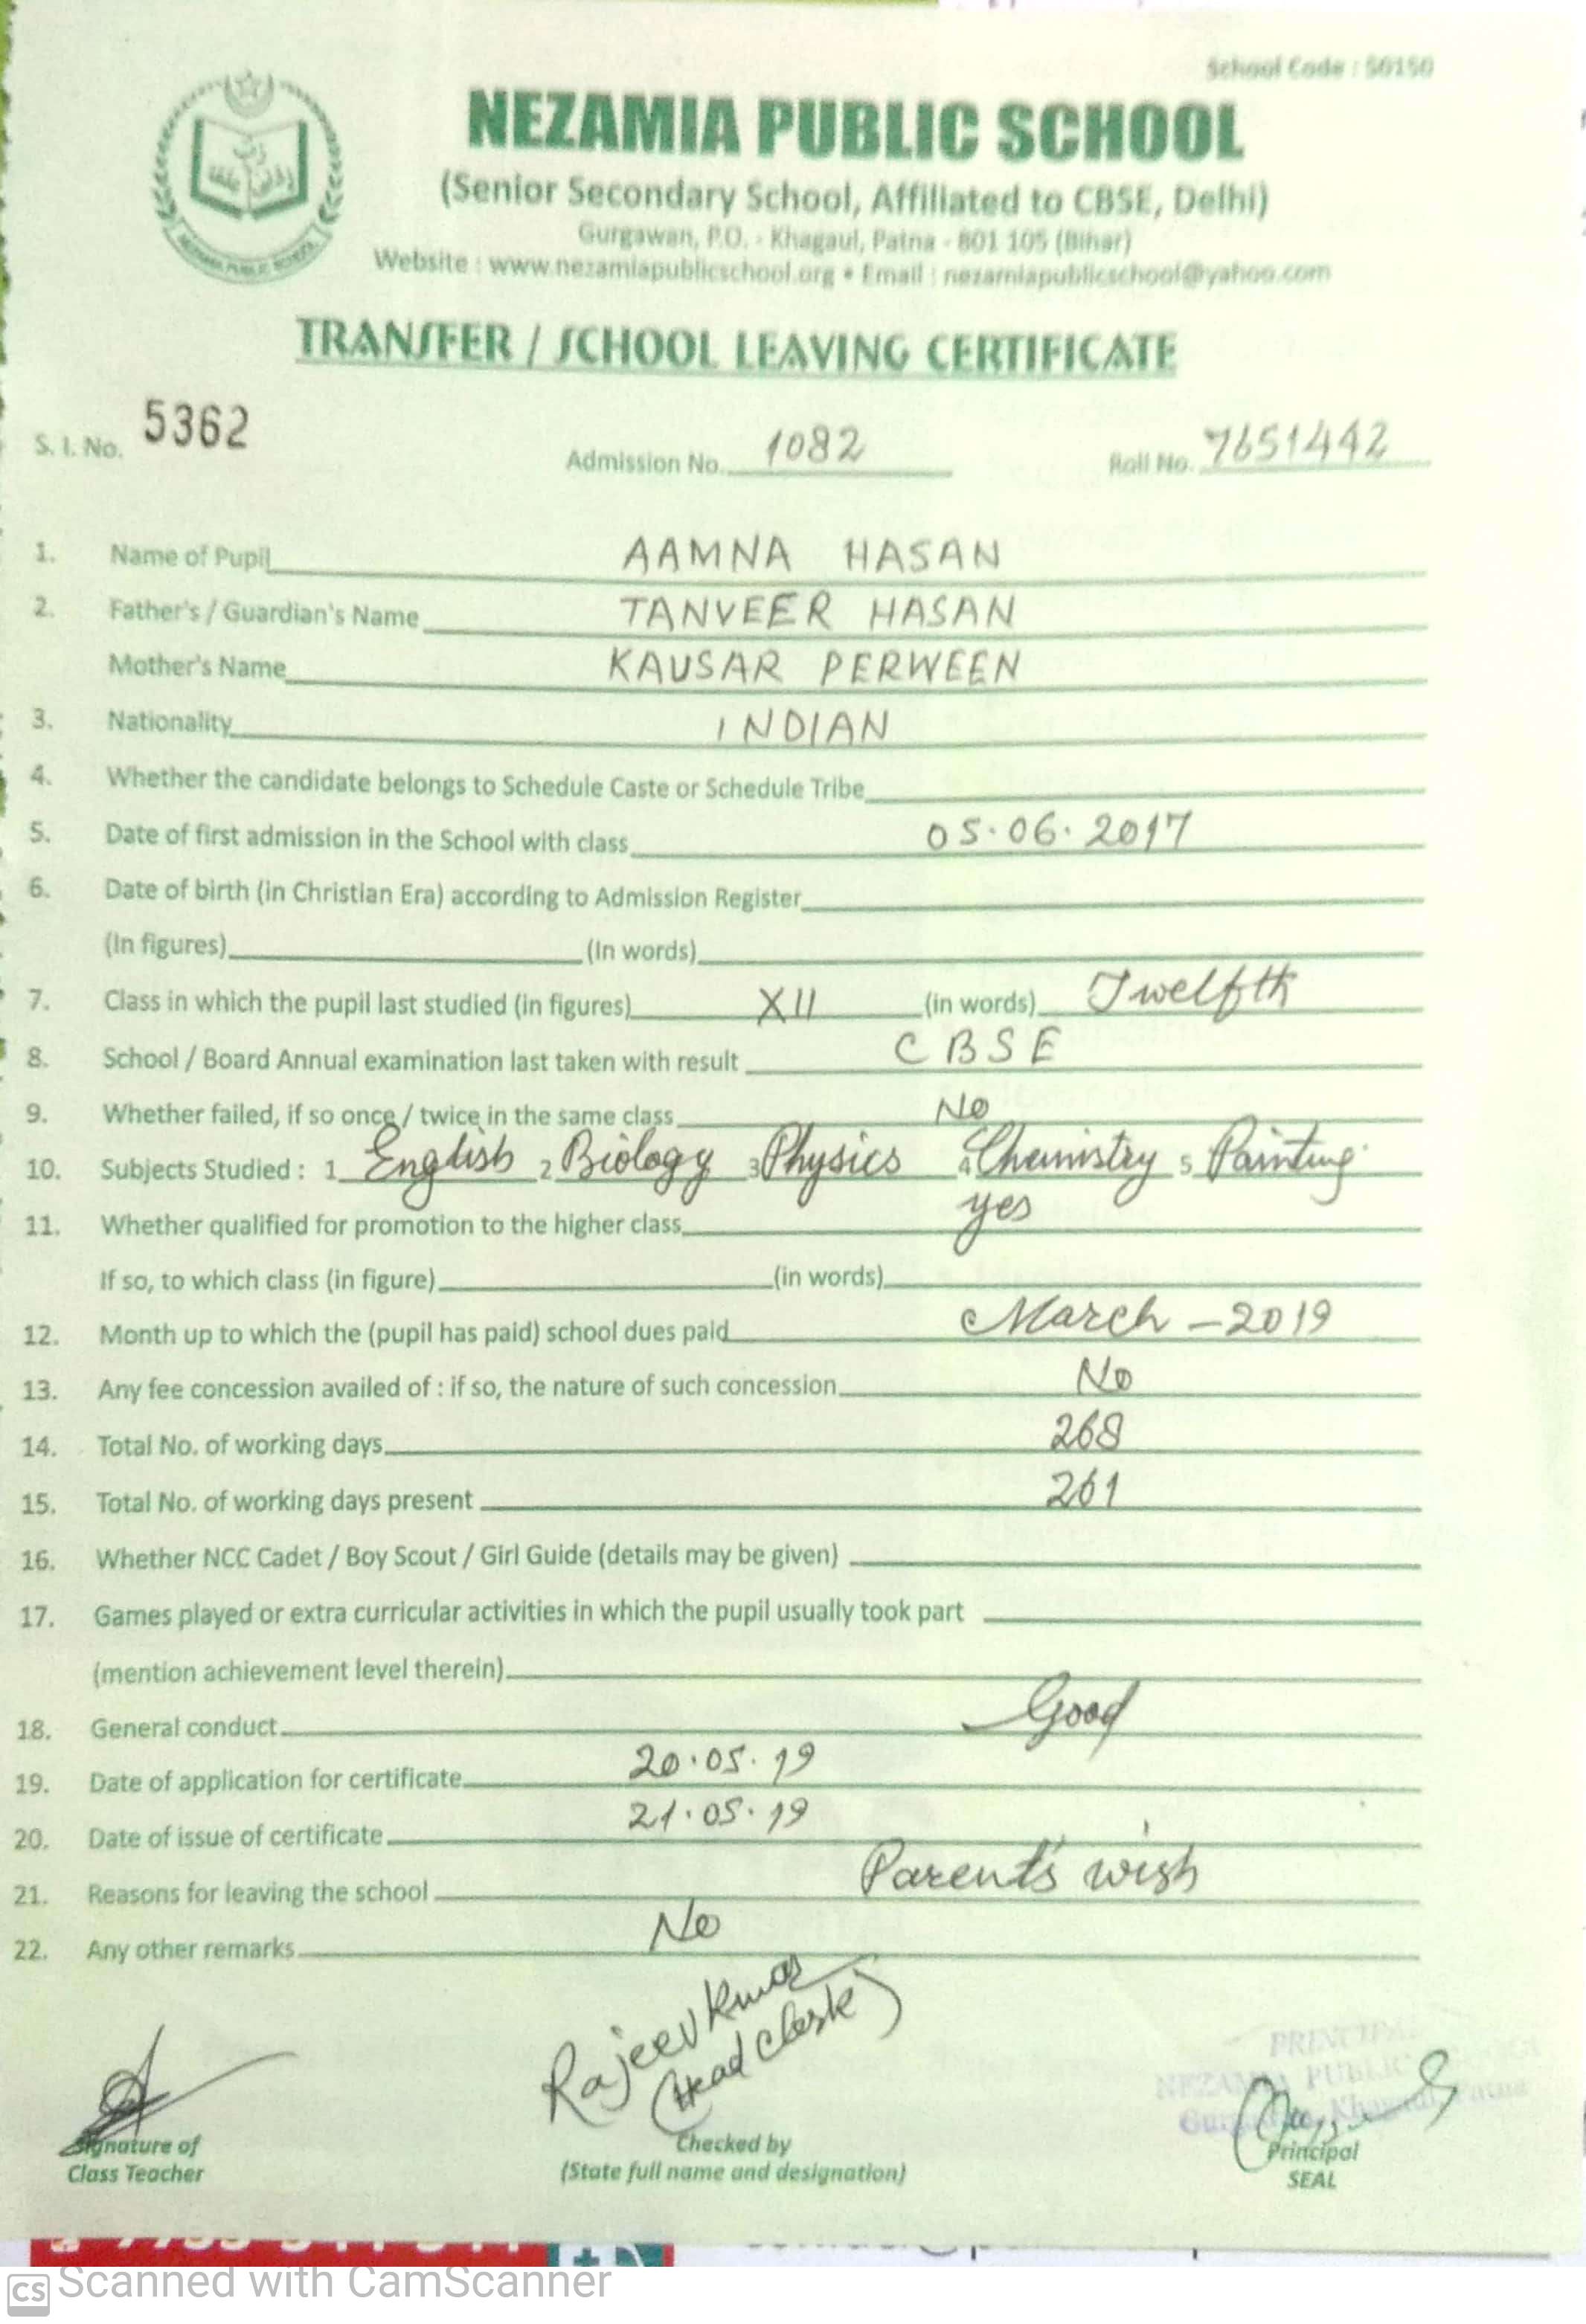 School Code : 50150
NEZAMIA PUBLIC SCHOOL
(Senior Secondary School, Affiliated to CBSE, Delhi)
Gurgawan, P.O. - Khagaul, Patna - 801 105 (Bihar)
Website : www.nezamiapublicschool.org • Email : nezamiapublicschool@yahoo.com
NEZAMIA PUBLIC SCHOOL
TRANSFER / SCHOOL LEAVING CERTIFICATE
S. I. No. 5362 Admission No. 1082 Roll No. 7651442
1. Name of Pupil AAMNA HASAN
2. Father's / Guardian's Name TANVEER HASAN
Mother's Name KAUSAR PERWEEN
3. Nationality INDIAN
4. Whether the candidate belongs to Schedule Caste or Schedule Tribe
5. Date of first admission in the School with class 05.06.2017
6. Date of birth (in Christian Era) according to Admission Register
(In figures) (In words)
7. Class in which the pupil last studied (in figures) XII (in words) Twelfth
8. School / Board Annual examination last taken with result CBSE
9. Whether failed, if so once / twice in the same class No
10. Subjects Studied : 1 English 2 Biology 3 Physics 4 Chemistry 5 Painting
11. Whether qualified for promotion to the higher class yes
If so, to which class (in figure) (in words)
12. Month up to which the (pupil has paid) school dues paid March - 2019
13. Any fee concession availed of : if so, the nature of such concession No
14. Total No. of working days 268
15. Total No. of working days present 261
16. Whether NCC Cadet / Boy Scout / Girl Guide (details may be given)
17. Games played or extra curricular activities in which the pupil usually took part
(mention achievement level therein)
18. General conduct Good
19. Date of application for certificate 20.05.19
20. Date of issue of certificate 21.05.19
21. Reasons for leaving the school Parent's wish
22. Any other remarks No
Rajeev Kumar
(Head Clerk)
PRINCIPAL
NEZAMIA PUBLIC
Khagaul, Patna
Signature of
Class Teacher
Checked by
(State full name and designation)
Principal
SEAL
CS Scanned with CamScanner